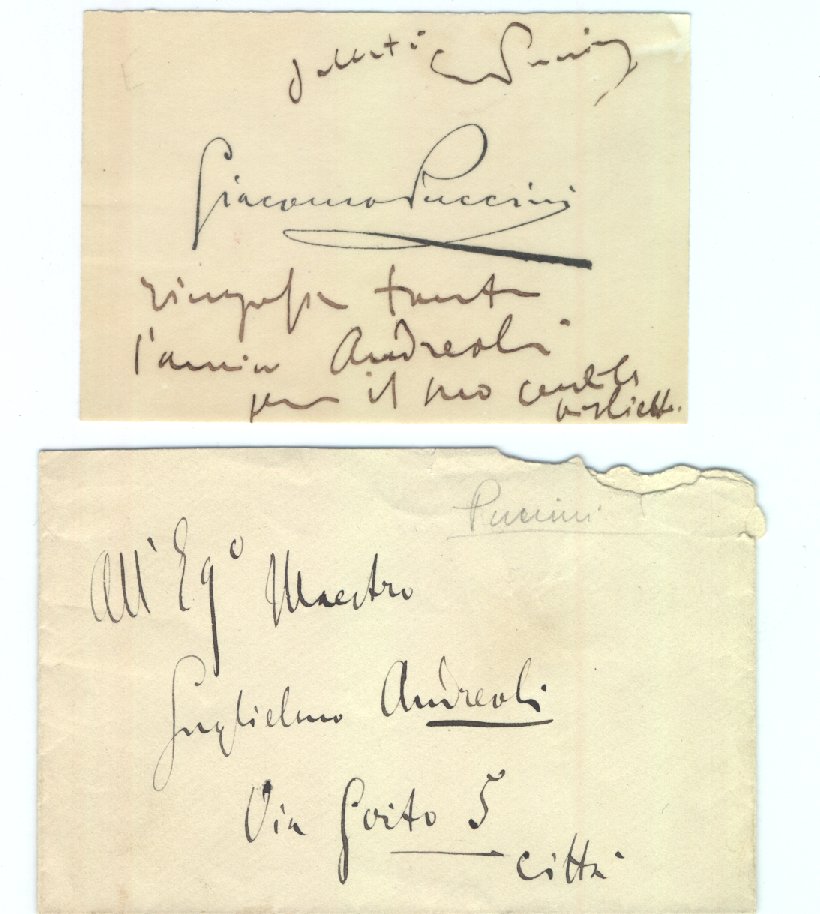 Giacomo Puccini
ringrazia tanto
l'amico Andreoli
per il suo gentile
biglietto.
Puccini
All' Egº Maestro
Guglielmo Andreoli
Via Goito 5
Città